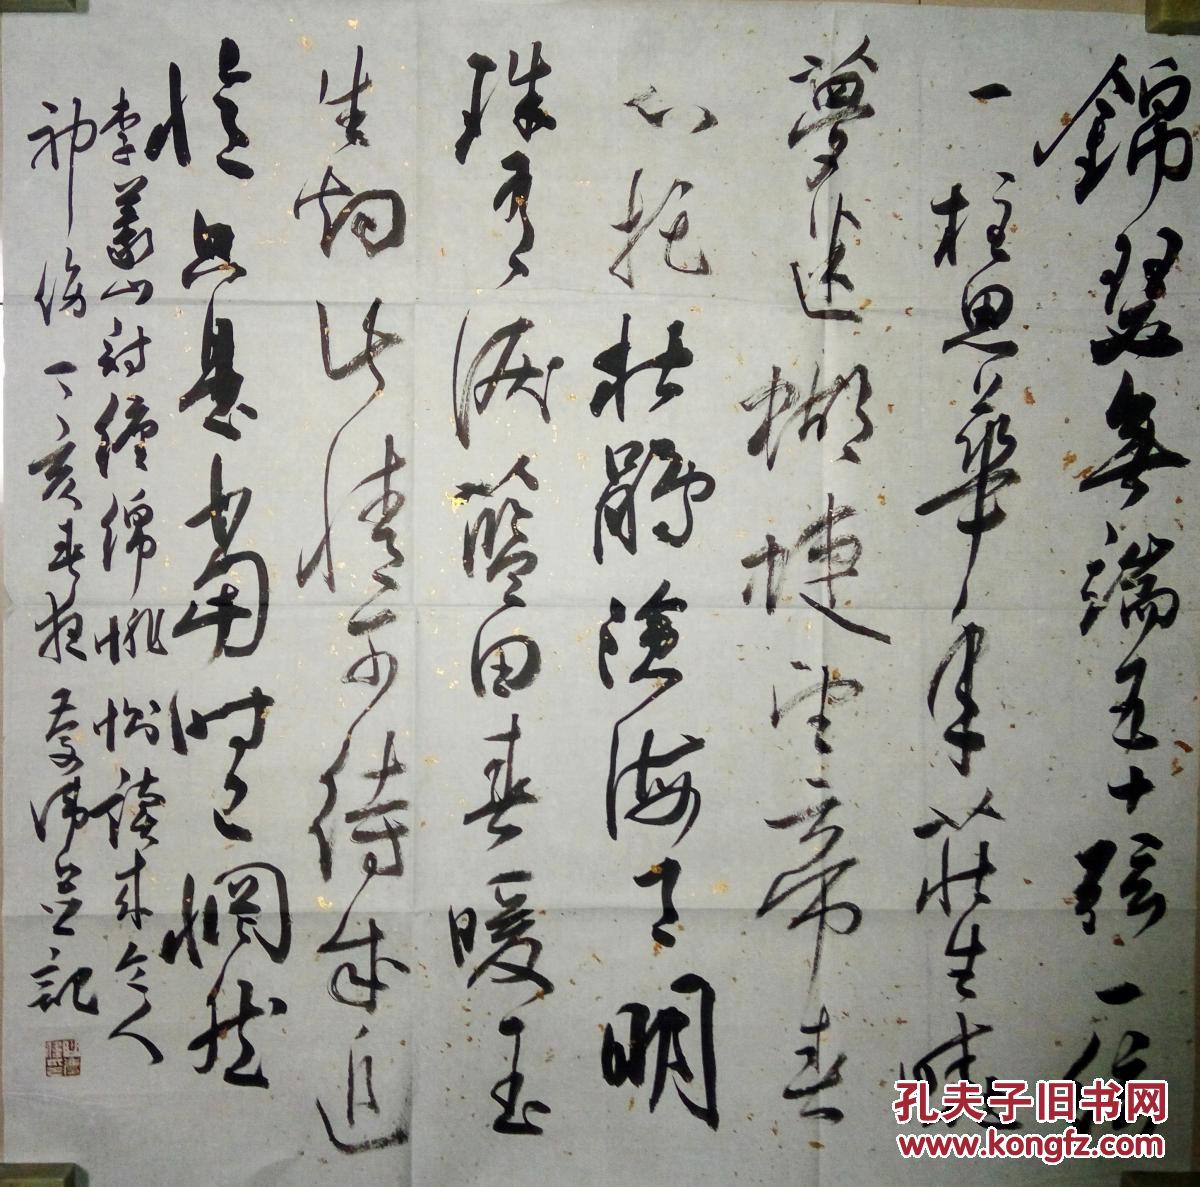 錦瑟無端五十弦一弦
一柱思華年莊生曉
夢迷蝴蝶望帝春
心托杜鵑滄海月明
珠有淚藍田春暖玉
生烟此情可待成追
憶只是當時已惘然
李義山詩纏綿悱惻讀來令人
神傷丁亥春夜並記
孔夫子旧书网
www.kongfz.com